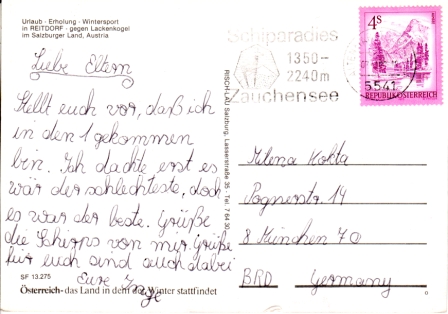 Urlaub · Erholung · Wintersport
in REITDORF · gegen Lackenkogel
im Salzburger Land, Austria
Liebe Eltern
Stellt euch vor, daß ich
in den 1 gekommen
bin. Ich dachte erst es
wär der schlechteste, doch
es war der beste. Grüße
die Schirps von mir. Grüße
für euch sind auch dabei
Eure Inge
SF 13.275
Österreich - das Land in dem der Winter stattfindet
RISCH-LAU Salzburg, Lasserstraße 35 · Tel. 7 64 30
Schiparadies
1350-
2240m
Zauchensee
4S
5541
REPUBLIK ÖSTERREICH
Milena Kokta
Pognerstr. 14
8 München 70
BRD Germany